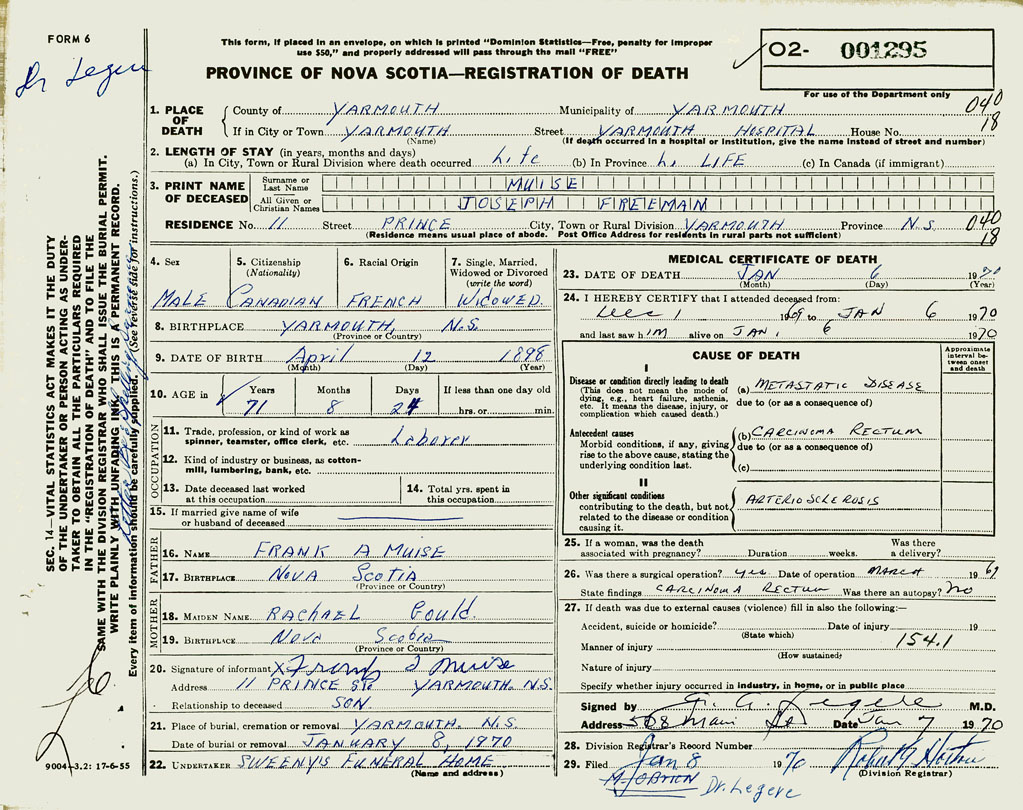 FORM 6
Dr Legere
This form, if placed in an envelope, on which is printed "Dominion Statistics—Free, penalty for improper
use $50," and properly addressed will pass through the mail "FREE"
PROVINCE OF NOVA SCOTIA—REGISTRATION OF DEATH
02- 001295
For use of the Department only
040
18
1. PLACE OF DEATH
County of YARMOUTH Municipality of YARMOUTH
If in City or Town YARMOUTH Street YARMOUTH HOSPITAL House No.
(Name) (If death occurred in a hospital or institution, give the name instead of street and number)
2. LENGTH OF STAY (in years, months and days)
(a) In City, Town or Rural Division where death occurred Life (b) In Province LIFE (c) In Canada (if immigrant)
3. PRINT NAME OF DECEASED
Surname or Last Name MUISE
All Given or Christian Names JOSEPH FREEMAN
RESIDENCE No. 11 Street PRINCE City, Town or Rural Division YARMOUTH Province N.S. 040
(Residence means usual place of abode. Post Office Address for residents in rural parts not sufficient) 18
4. Sex 5. Citizenship (Nationality) 6. Racial Origin 7. Single, Married, Widowed or Divorced (write the word)
MALE CANADIAN FRENCH WIDOWED
8. BIRTHPLACE YARMOUTH, N.S.
(Province or Country)
9. DATE OF BIRTH April 12 1898
(Month) (Day) (Year)
10. AGE in Years Months Days If less than one day old
71 8 24 hrs. or min.
OCCUPATION
11. Trade, profession, or kind of work as
spinner, teamster, office clerk, etc. Laborer
12. Kind of industry or business, as cotton-
mill, lumbering, bank, etc.
13. Date deceased last worked at this occupation
14. Total yrs. spent in this occupation
15. If married give name of wife
or husband of deceased
FATHER
16. NAME FRANK A MUISE
17. BIRTHPLACE NOVA SCOTIA
(Province or Country)
MOTHER
18. MAIDEN NAME RACHAEL Gould
19. BIRTHPLACE NOVA Scotia
(Province or Country)
20. Signature of informant X Muise
Address 11 PRINCE ST. YARMOUTH. N.S.
Relationship to deceased SON
21. Place of burial, cremation or removal YARMOUTH. N.S.
Date of burial or removal JANUARY 8, 1970
22. UNDERTAKER SWEENY'S FUNERAL HOME
(Name and address)
MEDICAL CERTIFICATE OF DEATH
23. DATE OF DEATH JAN 6 1970
(Month) (Day) (Year)
24. I HEREBY CERTIFY that I attended deceased from:
Dec 1 1969 to JAN 6 1970
and last saw him alive on JAN. 6 1970
CAUSE OF DEATH
Approximate interval between onset and death
I
Disease or condition directly leading to death
(This does not mean the mode of
dying, e.g., heart failure, asthenia,
etc. It means the disease, injury, or
complication which caused death.)
(a) METASTATIC DISEASE
due to (or as a consequence of)
Antecedent causes
Morbid conditions, if any, giving
rise to the above cause, stating the
underlying condition last.
(b) CARCINOMA RECTUM
due to (or as a consequence of)
(c)
II
Other significant conditions
contributing to the death, but not
related to the disease or condition
causing it.
ARTERIOSCLEROSIS
25. If a woman, was the death Was there
associated with pregnancy? Duration weeks. a delivery?
26. Was there a surgical operation? yes Date of operation MARCH 1969
State findings CARCINOMA RECTUM Was there an autopsy? No
27. If death was due to external causes (violence) fill in also the following:—
Accident, suicide or homicide? Date of injury 19
(State which)
Manner of injury 154.1
(How sustained)
Nature of injury
Specify whether injury occurred in industry, in home, or in public place
Signed by G. A. Legere M.D.
Address 508 Main St Date Jan 7 1970
28. Division Registrar's Record Number
29. Filed Jan 8 1970
(Division Registrar)
M. J. O'BRIEN Dr. Legere
SEC. 14—VITAL STATISTICS ACT MAKES IT THE DUTY
OF THE UNDERTAKER OR PERSON ACTING AS UNDER-
TAKER TO OBTAIN ALL THE PARTICULARS REQUIRED
IN THE "REGISTRATION OF DEATH" AND TO FILE THE
SAME WITH THE DIVISION REGISTRAR WHO SHALL ISSUE THE BURIAL PERMIT.
WRITE PLAINLY WITH UNFADING INK, THIS IS A PERMANENT RECORD.
Every item of information should be carefully supplied. (See reverse side for instructions.)
9004—3.2: 17-6-55